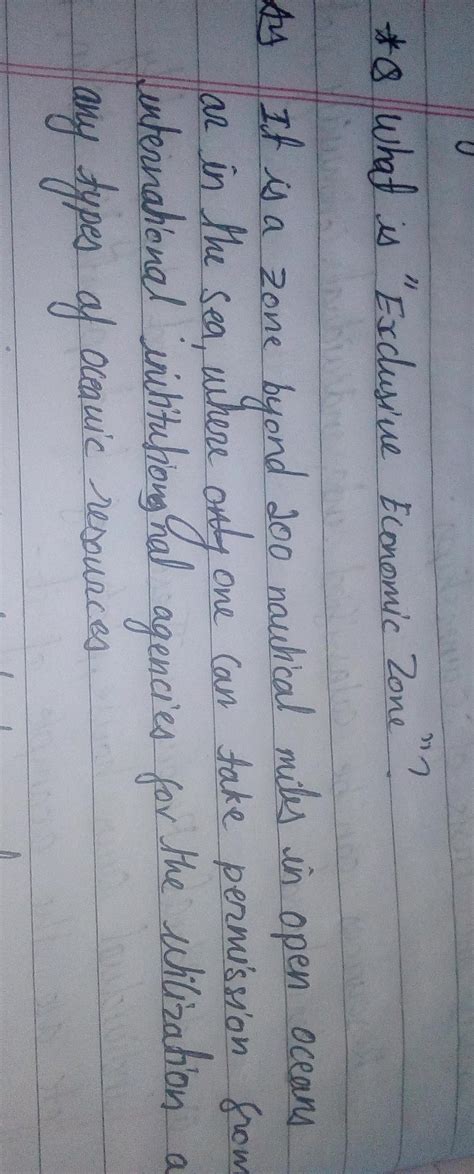 *Q What is "Exclusive Economic Zone"?
Ans It is a zone byond 200 nautical miles in open oceans
or in the sea, where only one can take permission from
international institutional agencies for the utilization
any types of oceanic resources